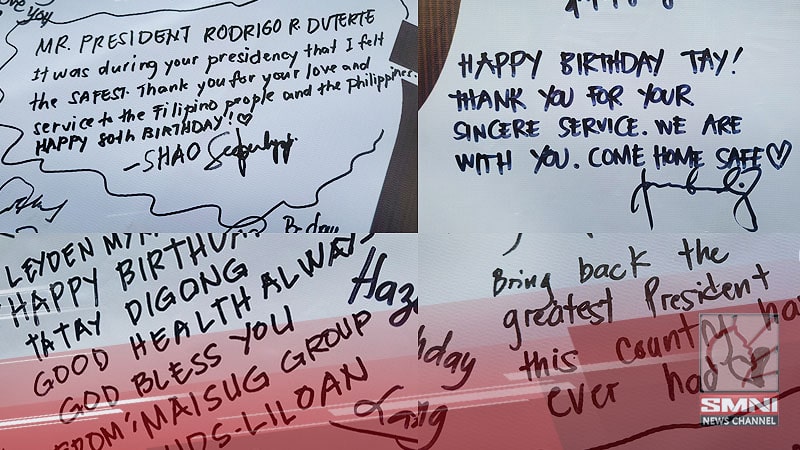 You
MR. PRESIDENT RODRIGO R. DUTERTE
It was during your presidency that I felt
the SAFEST. Thank you for your love and
service to the Filipino people and the Philippines.
HAPPY 80th BIRTHDAY! ♡
-SHAO
B-day
HAPPY BIRTHDAY TAY!
THANK YOU FOR YOUR
SINCERE SERVICE. WE ARE
WITH YOU. COME HOME SAFE ♡
LEYDEN
HAPPY BIRTHD
TATAY DIGONG
GOOD HEALTH ALWAY
GOD BLESS YOU
FROM: MAISUG GROUP
-LILOAN
Haze
hday
Bring back the
greatest President
this country ha
ever had
SMNI
NEWS CHANNEL